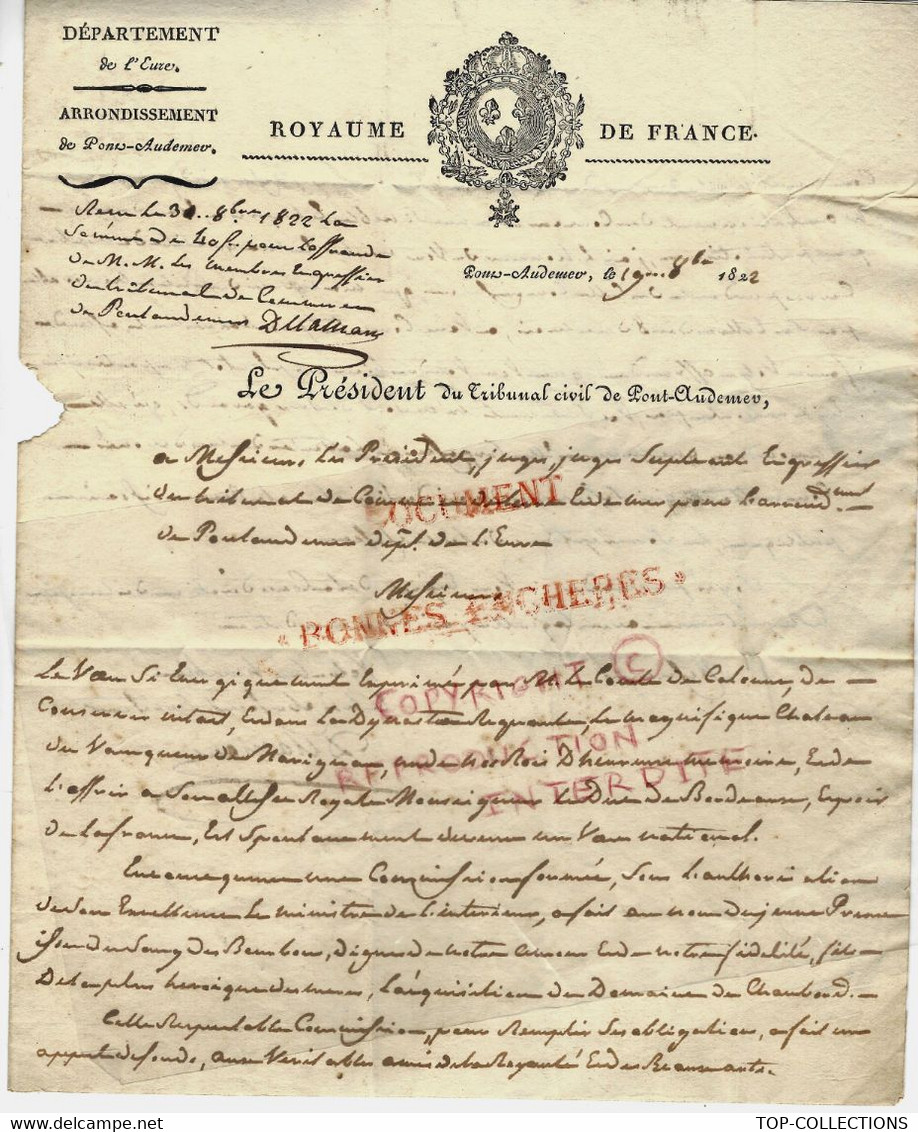 DÉPARTEMENT
de l'Eure.
ARRONDISSEMENT
de Pont-Audemer.
ROYAUME DE FRANCE.
8bre 1822 la
Somme de 40 f. pour l'offrande
de M. M. les membres
du tribunal de Commerce
de Pontaudemer
Pont-Audemer, le 19 8bre 1822
Le Président du Tribunal civil de Pont-Audemer,
a Messieurs les Président, juges, juges Supleants & greffier
du tribunal de Commerce de Pont Audemer pour l'arrond.ment
de Pontaudemer dépt. de l'Eure
DOCUMENT
Messieurs
" BONNES ENCHERES "
Le Vœu Si Energiquement Exprimé par M. le Comte de Calonne, de
COPYRIGHT ©
Conserver intact, & dans la Dynastie Regnante, le magnifique Chateau
du Vainqueur de Marignan, de nos Rois D'heureuse memoire, & de
REPRODUCTION
INTERDITE
L'offrir a Son altesse Royale Monseigneur le Duc de Bordeaux, Espoir
de la france, Est Spontanement devenu un Vœu national.
En consequence une Commission formée, Sous l'authorisation
de Son Excellence le ministre de l'interieur, a fait au nom du jeune Prince
issu du Sang des Bourbons, digne de notre amour & de notre fidelité, fils
De la plus heroique des meres, l'aquisition du Domaine de Chambord.
Cette Respectable Commission, pour Remplir Ses obligations, a fait un
appel de fonds, aux Veritables amis de la Royauté & des Beaux arts.
TOP-COLLECTIONS